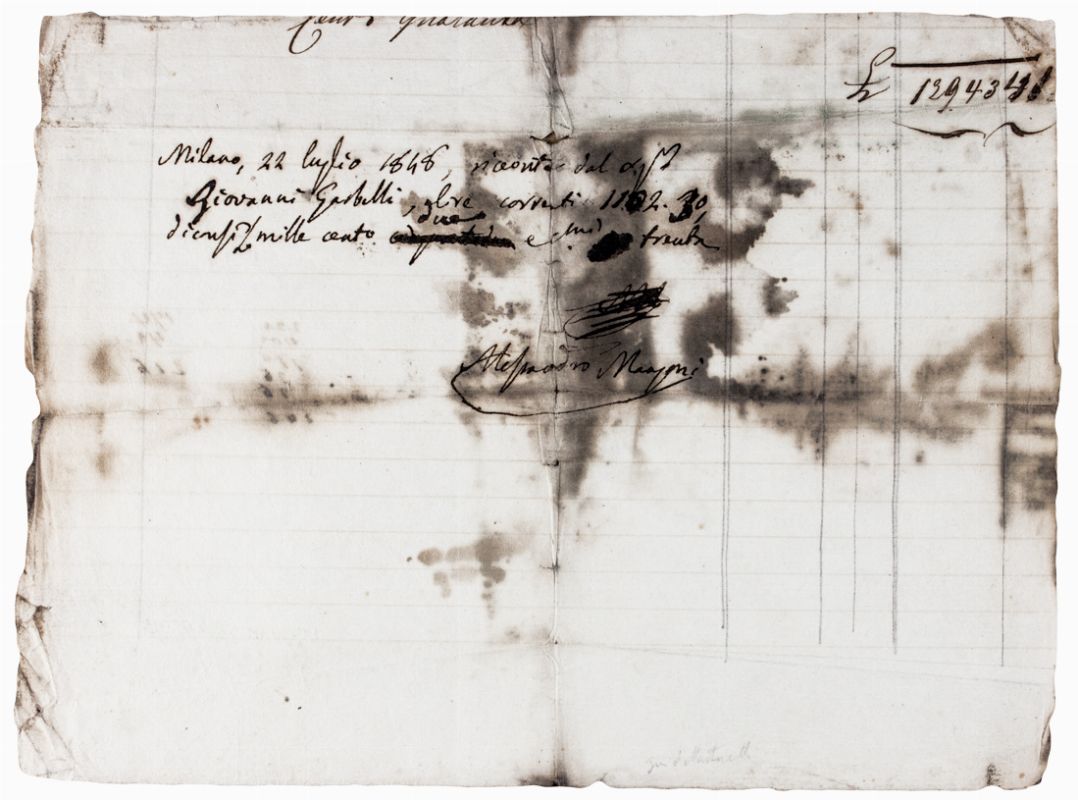 Cento Quaranta
12943
Milano, 22 luglio 1848, ricevute dal Sigr
Giovanni Garbelli, lire correnti 1102. 30,
diconsi mille cento
due
e trenta
Alessandro Manzoni